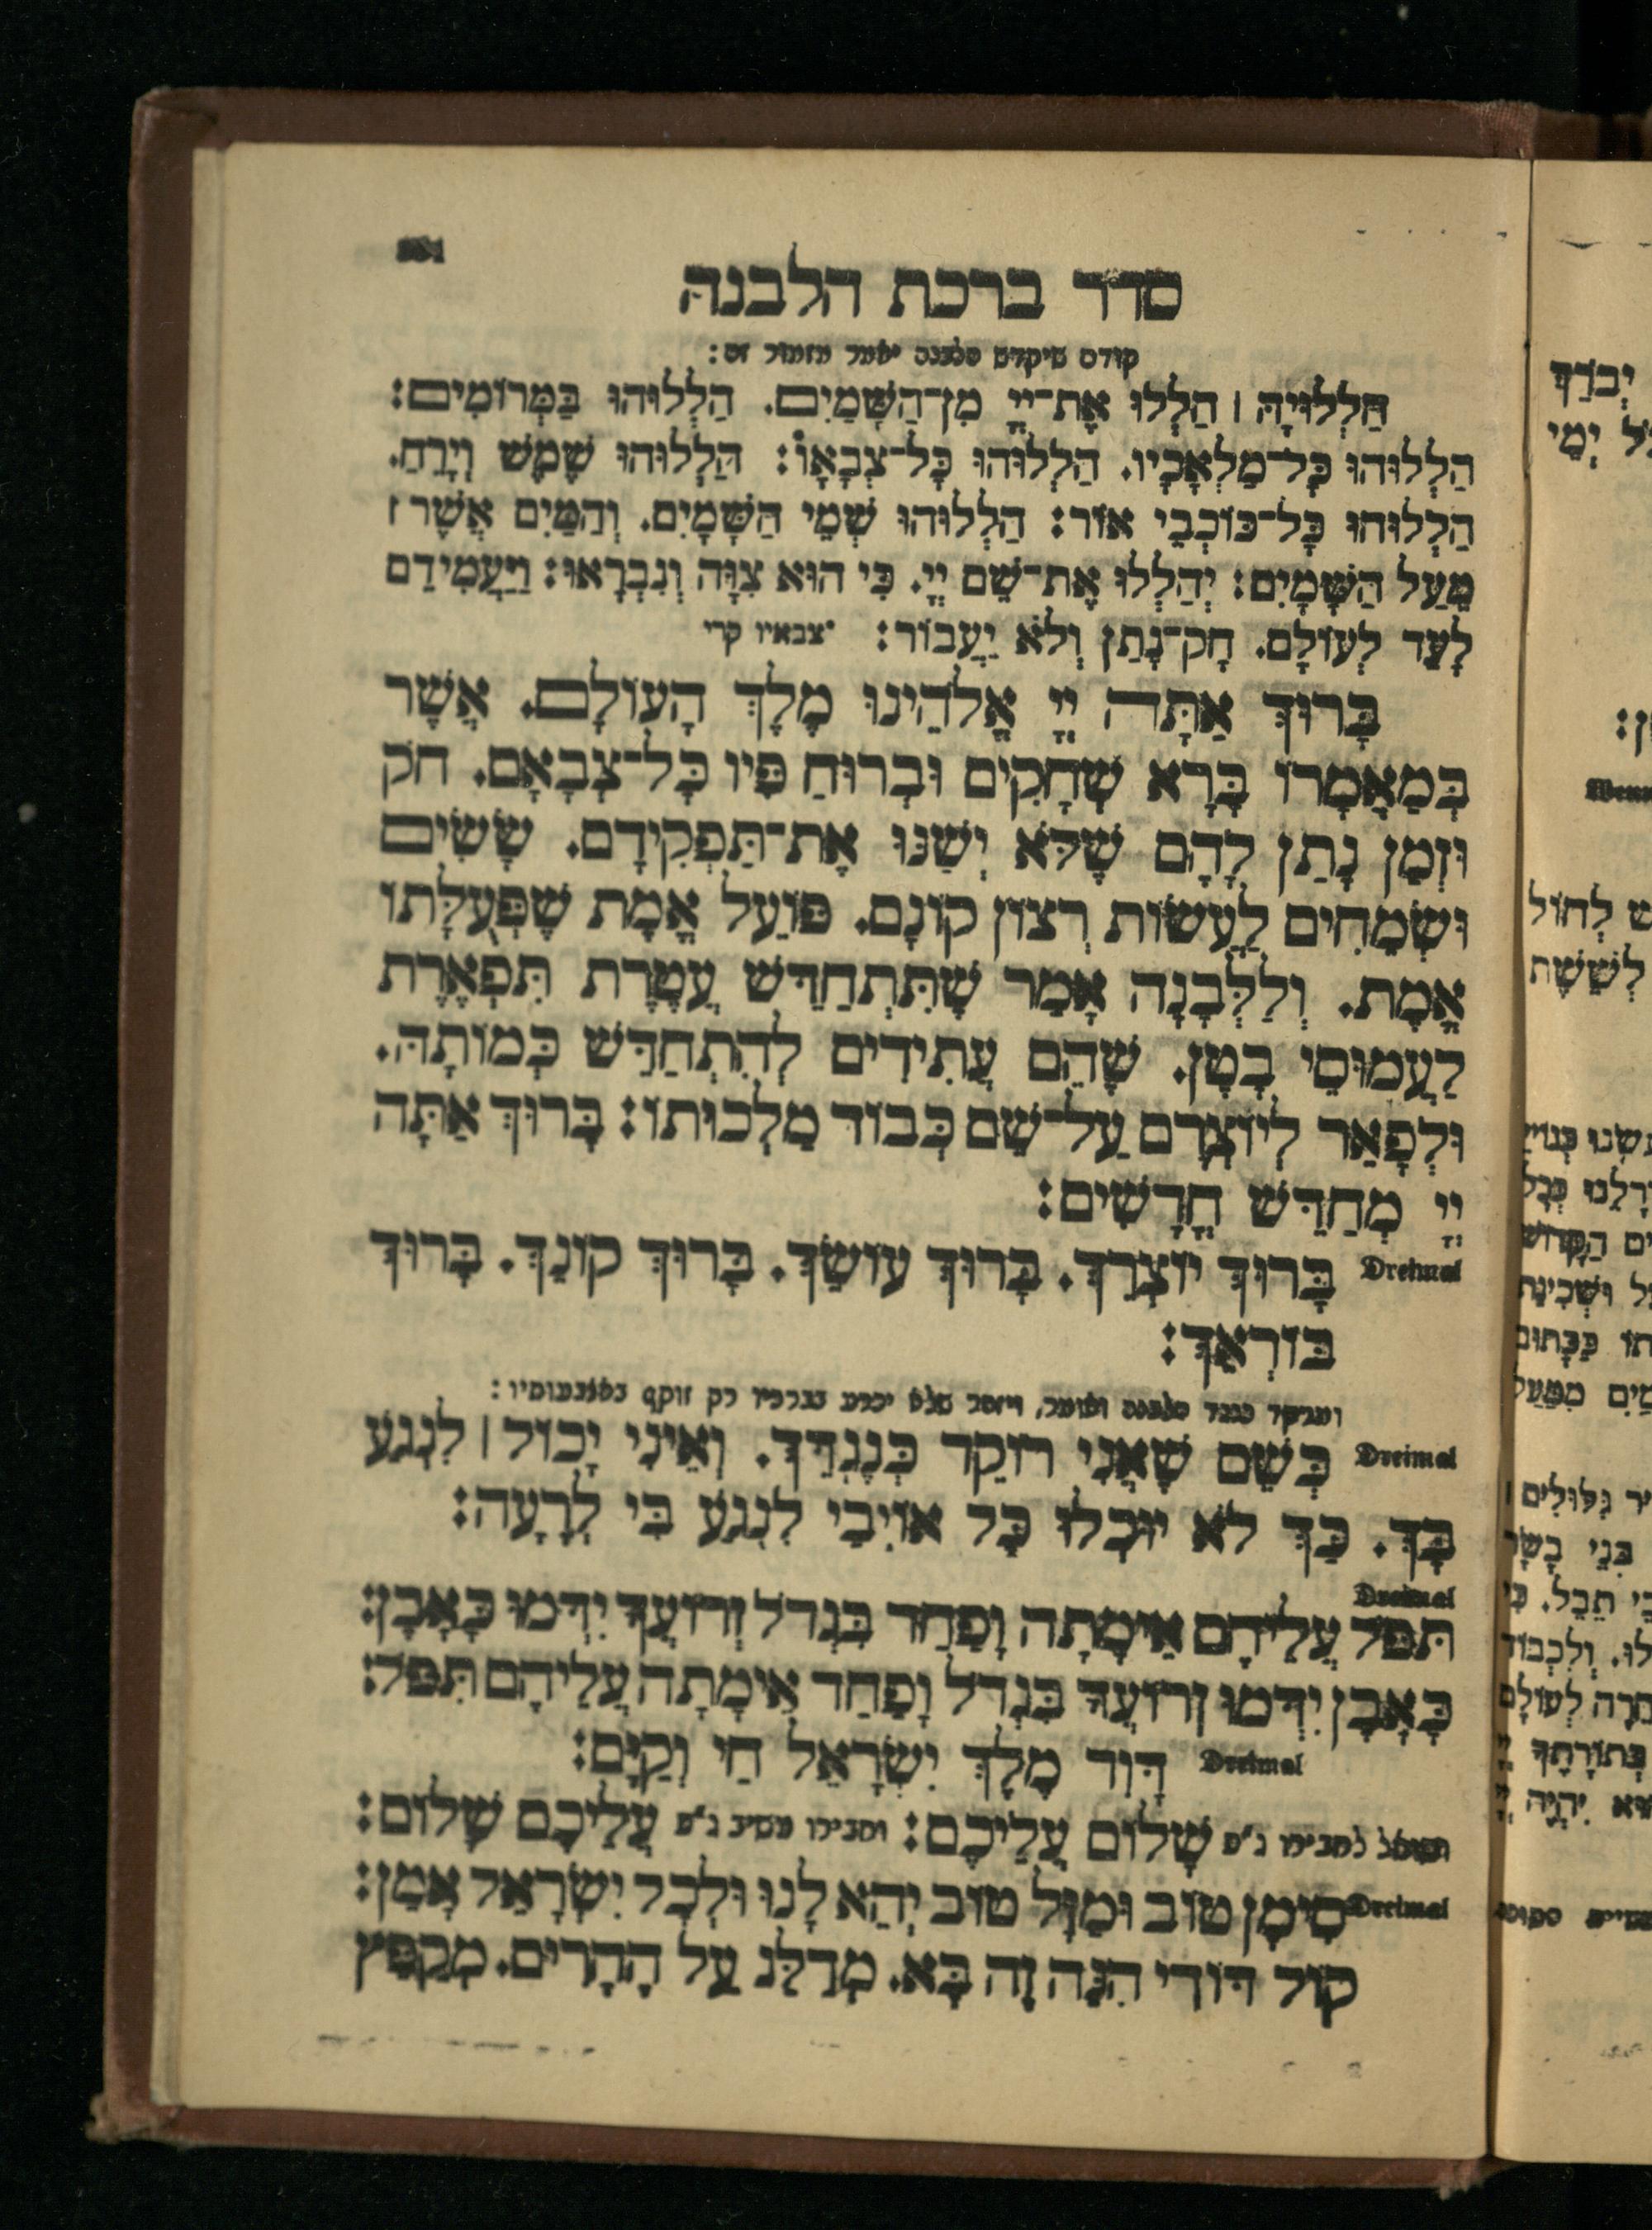 סדר ברכת הלבנה
קודם שיקדש הלבנה יאמר מזמור זה:
הַלְלוּיָהּ ׀ הַלְלוּ אֶת־יְיָ מִן־הַשָּׁמַיִם. הַלְלוּהוּ בַּמְּרוֹמִים:
הַלְלוּהוּ כָל־מַלְאָכָיו. הַלְלוּהוּ כָּל־צְבָאָו°: הַלְלוּהוּ שֶׁמֶשׁ וְיָרֵחַ.
הַלְלוּהוּ כָּל־כּוֹכְבֵי אוֹר: הַלְלוּהוּ שְׁמֵי הַשָּׁמָיִם. וְהַמַּיִם אֲשֶׁר ׀
מֵעַל הַשָּׁמָיִם: יְהַלְלוּ אֶת־שֵׁם יְיָ. כִּי הוּא צִוָּה וְנִבְרָאוּ: וַיַּעֲמִידֵם
לָעַד לְעוֹלָם. חָק־נָתַן וְלֹא יַעֲבוֹר: °צבאיו קרי
בָּרוּךְ אַתָּה יְיָ אֱלֹהֵינוּ מֶלֶךְ הָעוֹלָם. אֲשֶׁר
בְּמַאֲמָרוֹ בָּרָא שְׁחָקִים וּבְרוּחַ פִּיו כָּל־צְבָאָם. חֹק
וּזְמַן נָתַן לָהֶם שֶׁלֹּא יְשַׁנּוּ אֶת־תַּפְקִידָם. שָׂשִׂים
וּשְׂמֵחִים לַעֲשׂוֹת רְצוֹן קוֹנָם. פּוֹעֵל אֱמֶת שֶׁפְּעֻלָּתוֹ
אֱמֶת. וְלַלְּבָנָה אָמַר שֶׁתִּתְחַדֵּשׁ עֲטֶרֶת תִּפְאֶרֶת
לַעֲמוּסֵי בָטֶן. שֶׁהֵם עֲתִידִים לְהִתְחַדֵּשׁ כְּמוֹתָהּ.
וּלְפָאֵר לְיוֹצְרָם עַל־שֵׁם כְּבוֹד מַלְכוּתוֹ: בָּרוּךְ אַתָּה
יְיָ מְחַדֵּשׁ חֳדָשִׁים:
Dreimal בָּרוּךְ יוֹצְרֵךְ. בָּרוּךְ עוֹשֵׂךְ. בָּרוּךְ קוֹנֵךְ. בָּרוּךְ
בּוֹרְאֵךְ:
ומרקד כנגד הלבנה ואומר, ויזהר שלא יכרע בברכיו רק זוקף באצבעותיו:
Dreimal כְּשֵׁם שֶׁאֲנִי רוֹקֵד כְּנֶגְדֵּךְ. וְאֵינִי יָכוֹל ׀ לִנְגֹּעַ
בָּךְ. כַּךְ לֹא יוּכְלוּ כָּל אוֹיְבַי לִנְגֹּעַ בִּי לְרָעָה:
Dreimal
תִּפֹּל עֲלֵיהֶם אֵימָתָה וָפַחַד בִּגְדֹל זְרוֹעֲךָ יִדְּמוּ כָּאָבֶן:
כָּאָבֶן יִדְּמוּ זְרוֹעֲךָ בִּגְדֹל וָפַחַד אֵימָתָה עֲלֵיהֶם תִּפֹּל:
Dreimal דָּוִד מֶלֶךְ יִשְׂרָאֵל חַי וְקַיָּם:
ושואל לחבירו ג״פ שָׁלוֹם עֲלֵיכֶם: וחבירו משיב ג״פ עֲלֵיכֶם שָׁלוֹם:
Dreimal סִימָן טוֹב וּמַזָּל טוֹב יְהֵא לָנוּ וּלְכָל יִשְׂרָאֵל אָמֵן:
קוֹל דּוֹדִי הִנֵּה זֶה בָּא. מְדַלֵּג עַל הֶהָרִים. מְקַפֵּץ